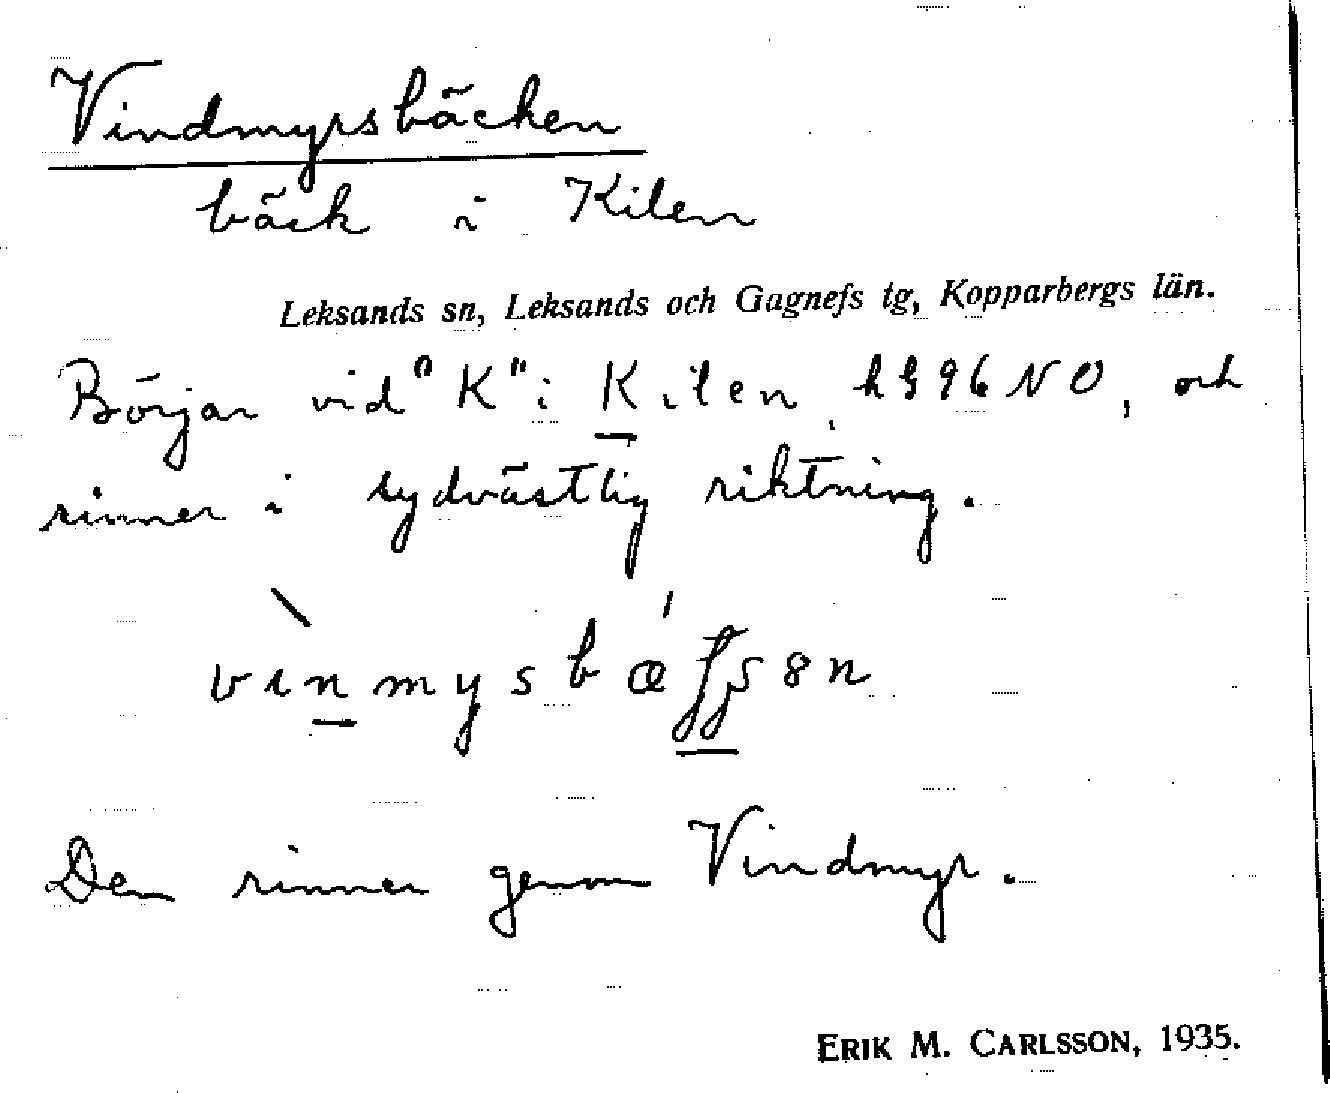 Vindmyrsbäcken
bäck i Kilen
Leksands sn, Leksands och Gagnefs tg, Kopparbergs län.
Börjar vid "K" i Kilen, h§96 NO, och
rinner i sydvästlig riktning.
Den rinner genom Vindmyr.
ERIK M. CARLSSON, 1935.